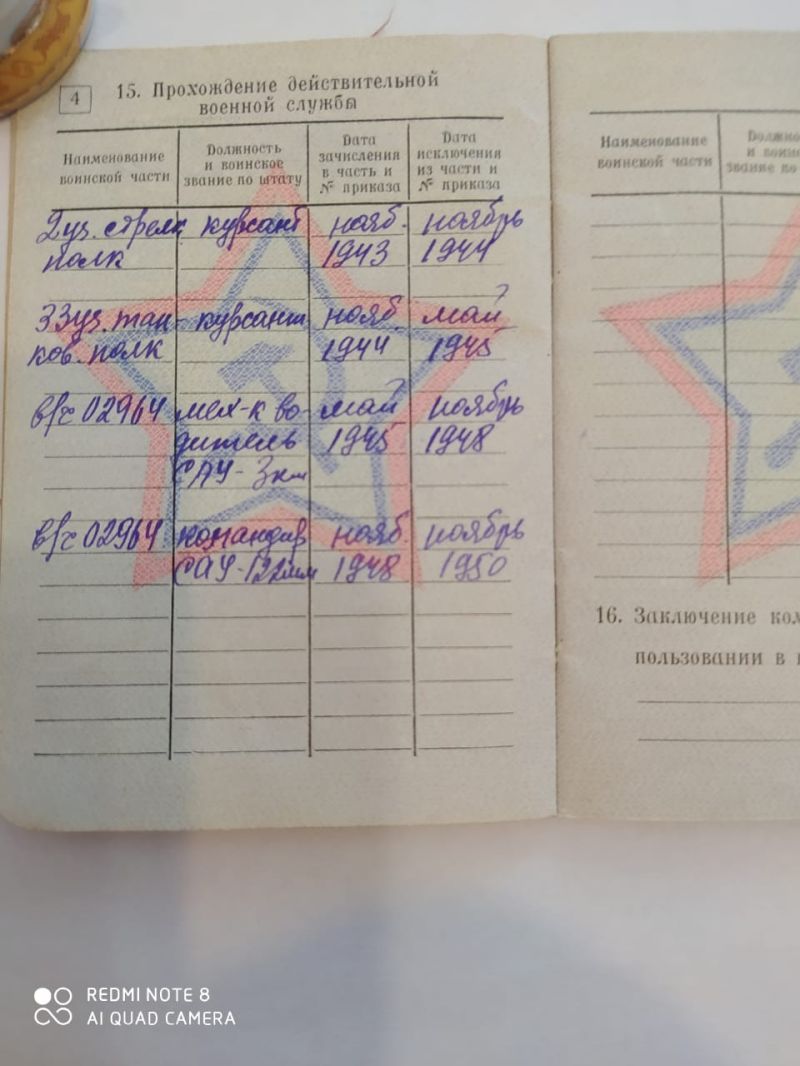 4
15. Прохождение действительной
военной службы
Наименование
воинской части
Должность
и воинское
звание по штату
Дата
зачисления
в часть и
№ приказа
Дата
исключения
из части и
№ приказа
2 уз. стрелк курсант нояб. ноябрь
полк 1943 1944
33 уз. тан- курсант нояб. май
ков. полк 1944 1945
в/ч 02964 мех-к во- май ноябрь
дитель 1945 1948
САУ-
в/ч 02964 командир нояб. ноябрь
САУ-122мм 1948 1950
Наименование
воинской части
и воинс
звание по
16. Заключение ком
пользовании в
REDMI NOTE 8
AI QUAD CAMERA